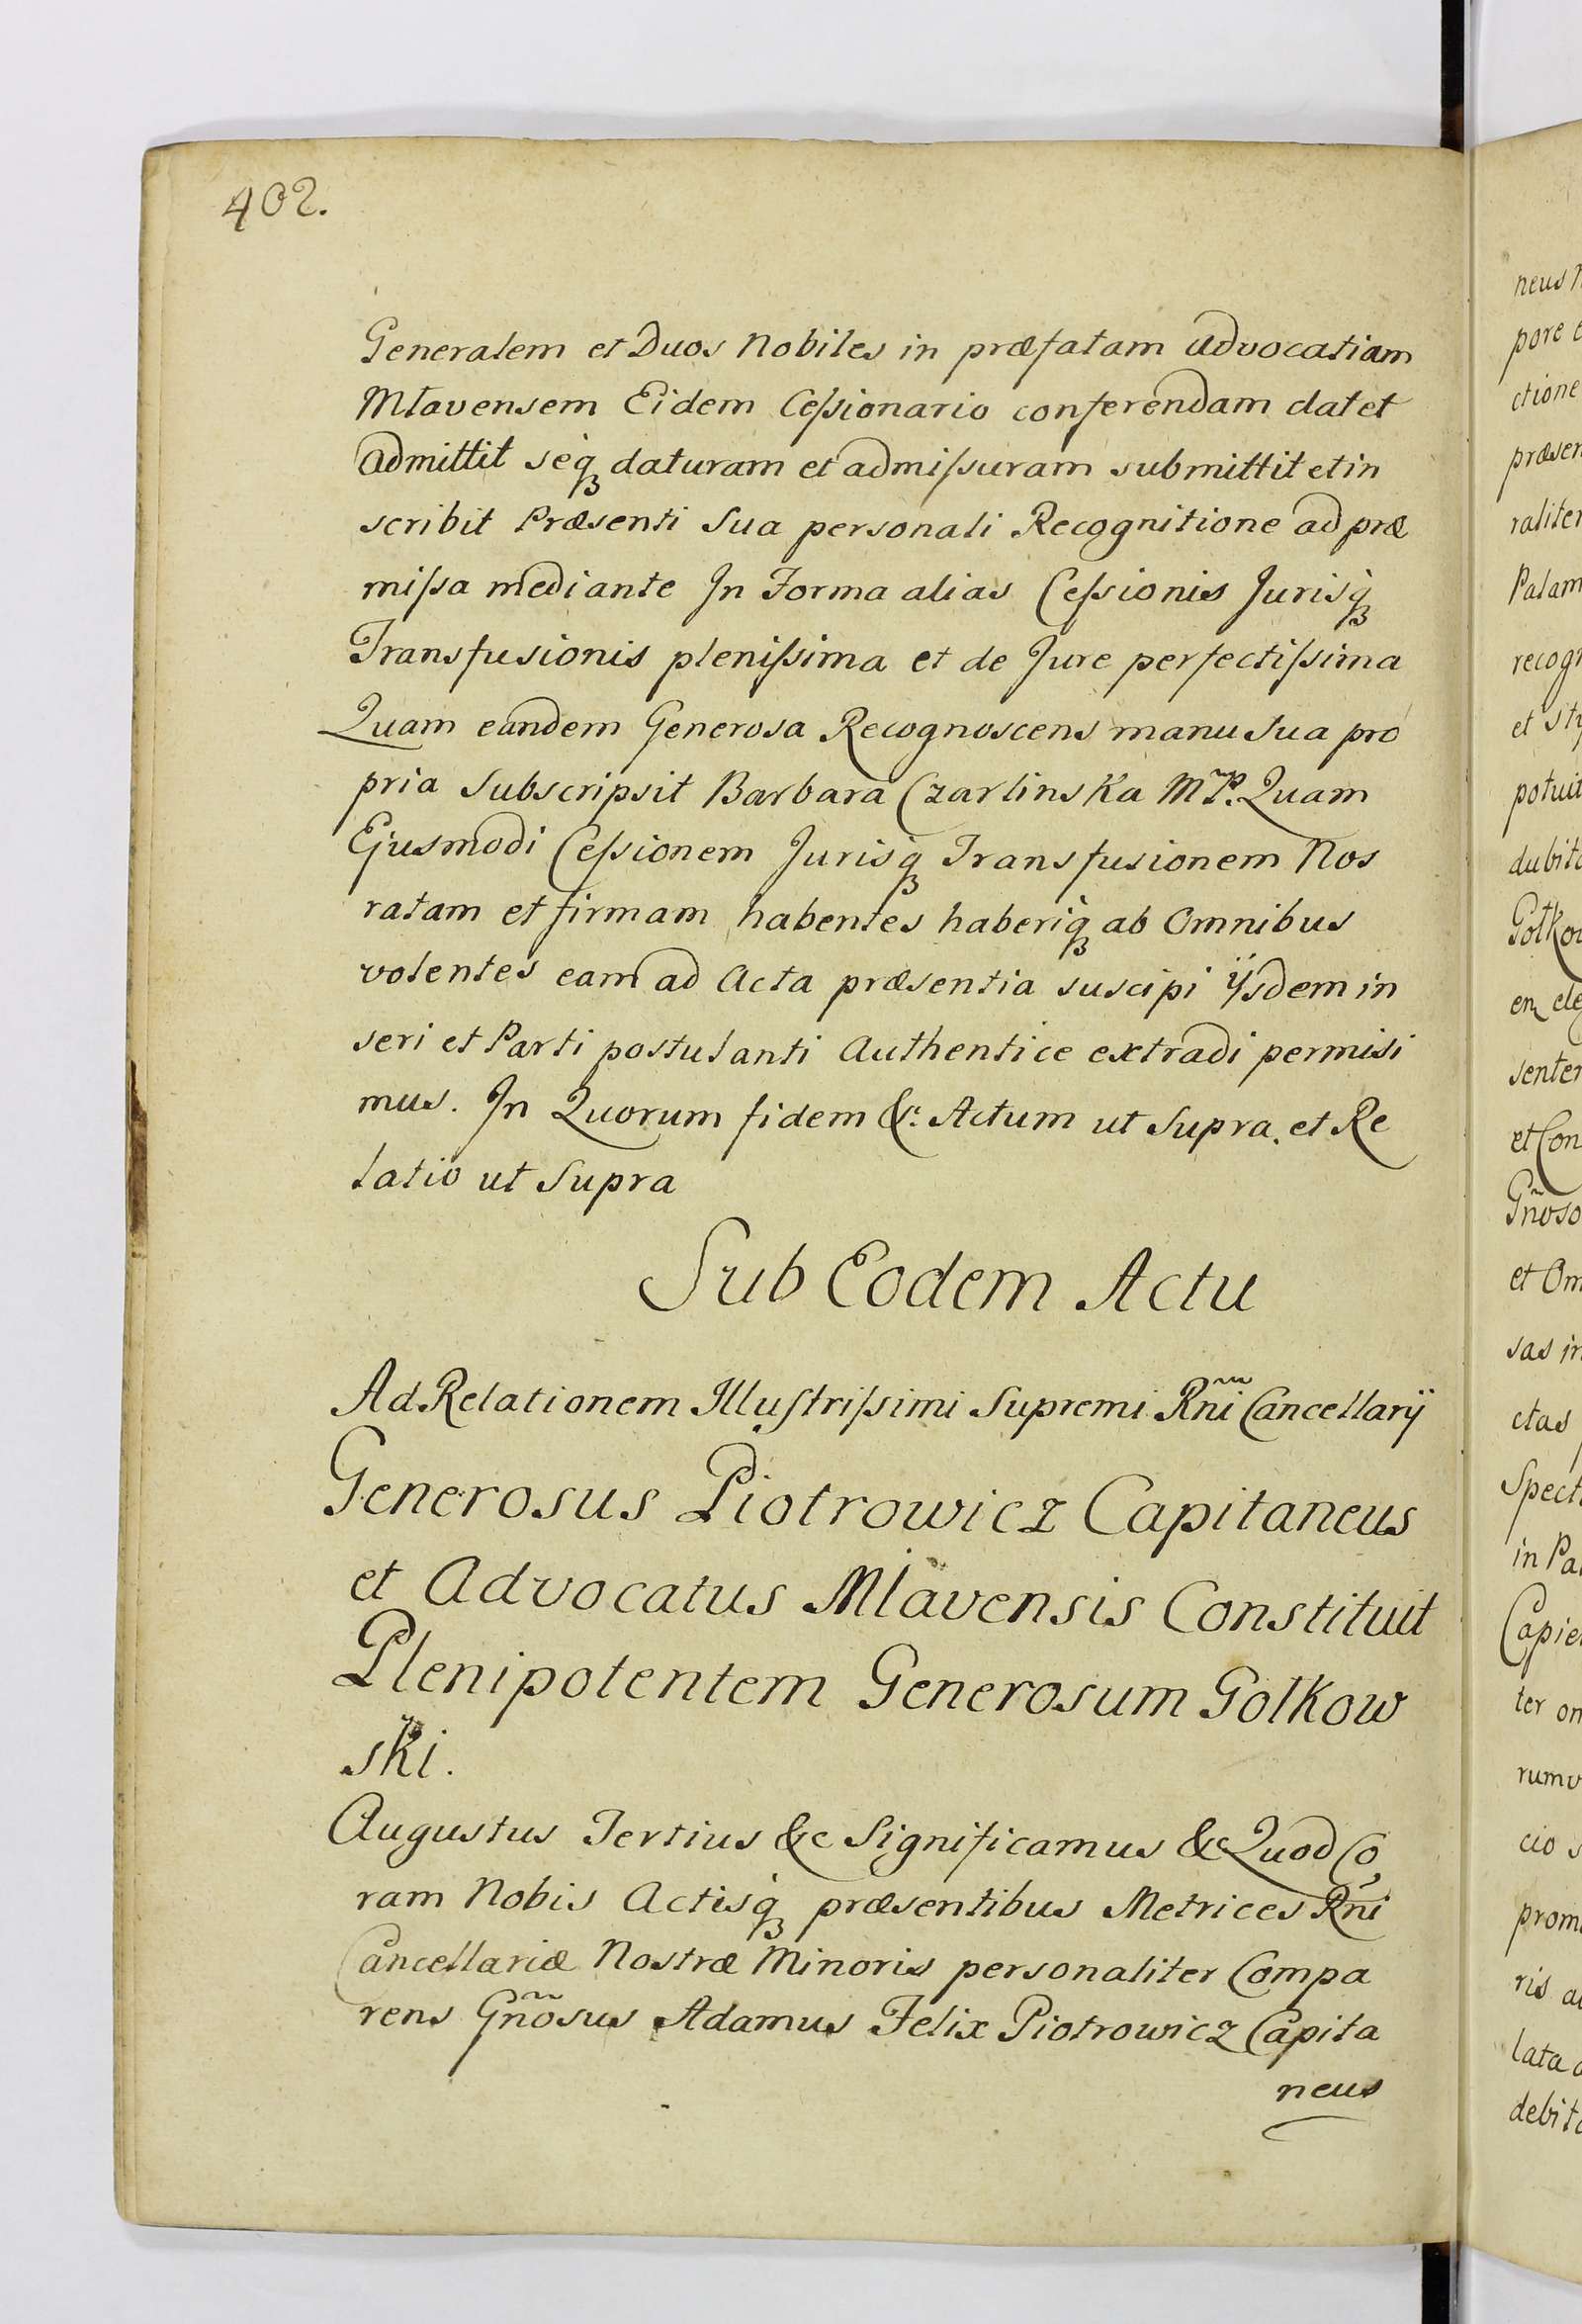 402.
Generalem et Duos Nobiles in præfatam advocatiam
Mlavensem Eidem Ceſsionario conferendam dat et
admittit seq̀ꝫ daturam et admiſsuram submittit et in
scribit Præsenti Sua personali Recognitione ad præ
miſsa mediante In Forma alias Ceſsionis Jurisq̀ꝫ
Transfusionis pleniſsima et de Jure perfectiſsima
Quam eandem Generosa Recognoscens manu Sua pro
pria Subscripsit Barbara Czarlinska M̃P. Quam
Ejusmodi Ceſsionem Jurisq̀ꝫ Transfusionem Nos
ratam et firmam habentes haberiq̀ꝫ ab Omnibus
volentes eam ad Acta præsentia suscipi ÿsdem in
seri et Parti postulanti Authentice extradi permisi
mus. In Quorum fidem &c: Actum ut Supra. et Re
latio ut Supra
Sub Eodem Actu
Ad Relationem Illuſtriſsimi Supremi Rñi Cancellarÿ
Generosus Piotrowicz Capitaneus
et Advocatus Mlavensis Constituit
Plenipotentem Generosum Golkow
ski.
Augustus Tertius &c Significamus &c Quod Co
ram Nobis Actisq̀ꝫ præsentibus Metrices Rñi
Cancellariæ Nostræ Minoris personaliter Compa
rens Gñosus Adamus Felix Piotrowicz Capita
neus
neus
pore
ctione
præsen
raliter
Palam
recogn
et
potuit
dubita
Golkow
senten
et Con
Gñoso
et Om
sas in
ctas
Spect
in Pa
Capie
ter om
rumv
cio s
prom
ris a
lata
debit